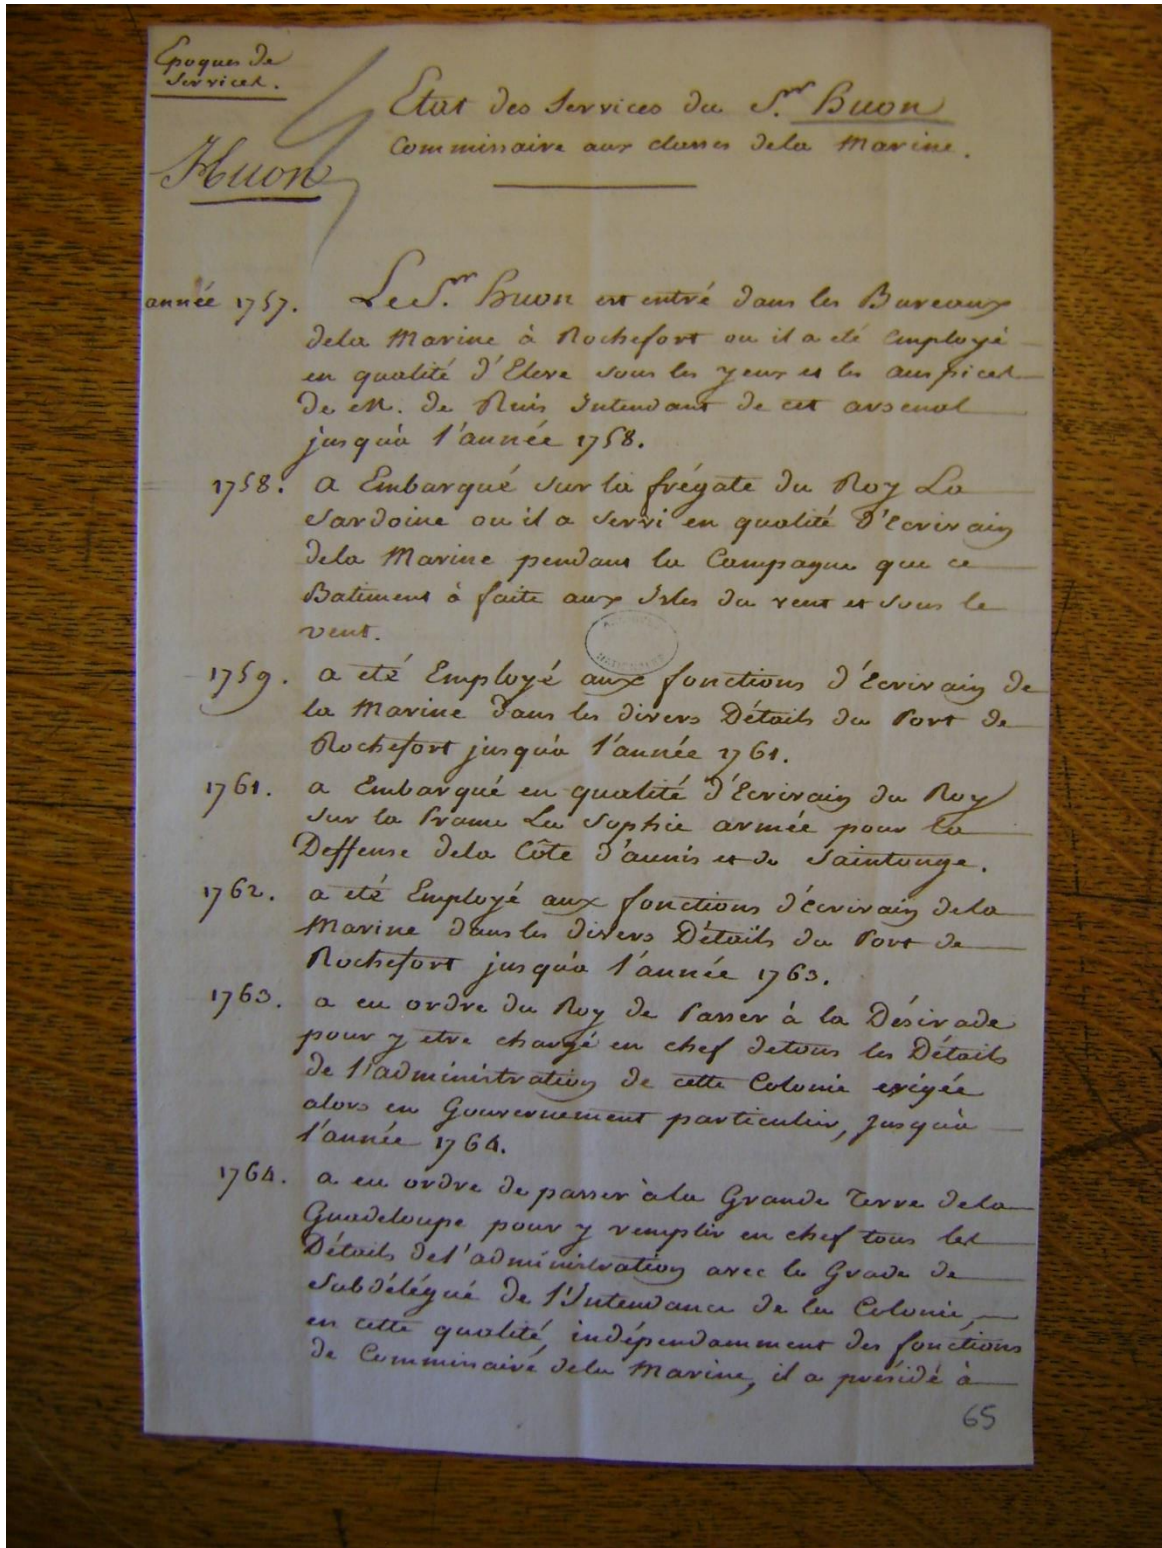 Epoques de
Services.
Etat des Services du S.r Huon
Commissaire aux classes dela Marine.
Huon
année 1757. Le S.r Huon est entré dans les Bureaux
dela Marine à Rochefort ou il a eté Employé
en qualité d'Eleve sous les yeux et les auspices
de M. de Ruis Intendant de cet arsenal
jusqu'à l'année 1758.
1758. a Embarqué sur la frégate du Roy La
Sardoine ou il a servi en qualité d'Ecrivain
dela Marine pendant la Campagne que ce
Batiment à faite aux Isles du vent et sous le
vent.
1759. a eté Employé aux fonctions d'Ecrivain de
la Marine dans les divers Détails du Port de
Rochefort jusqu'à l'année 1761.
1761. a Embarqué en qualité d'Ecrivain du Roy
sur la Prame La Sophie armée pour la
Deffense dela Côte d'aunis et de Saintonge.
1762. a eté Employé aux fonctions d'écrivain dela
Marine dans les divers Détails du Port de
Rochefort jusqu'à l'année 1763.
1763. a eu ordre du Roy de Passer à la Désirade
pour y etre chargé en chef detous les Détails
de l'administration de cette Colonie erigée
alors en Gouvernement particulier, jusqu'à
l'année 1764.
1764. a eu ordre de passer àla Grande Terre dela
Guadeloupe pour y remplir en chef tous les
Détails del'administration avec le Grade de
Subdélégué de l'Intendance de la Colonie,
en cette qualité, indépendamment des fonctions
de Commissaire dela Marine, il a présidé à
65